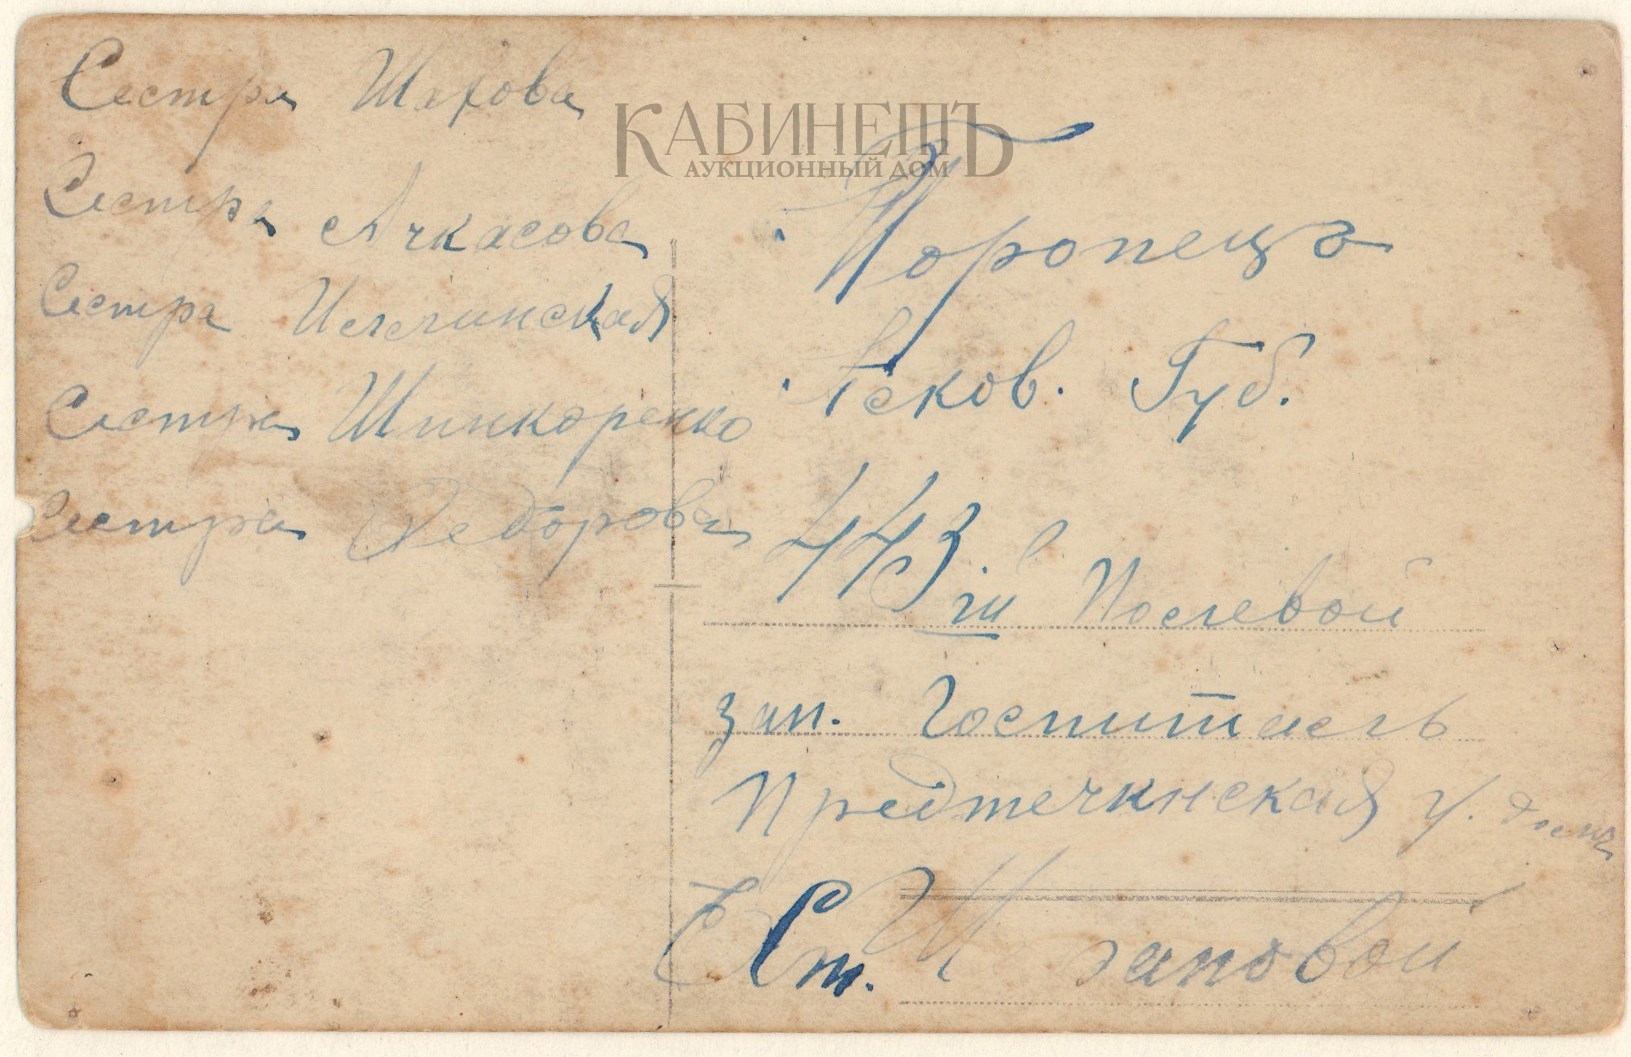 Сестра Шахова
Сестра Ачкасова
Сестра
Сестра Шинкоренко
Сестра Федорова
КАБИНЕТЪ
АУКЦИОННЫЙ ДОМ
Торопецъ
Псков. Губ.
443.й Полевой
зап. Госпиталь
Предтечинская у.